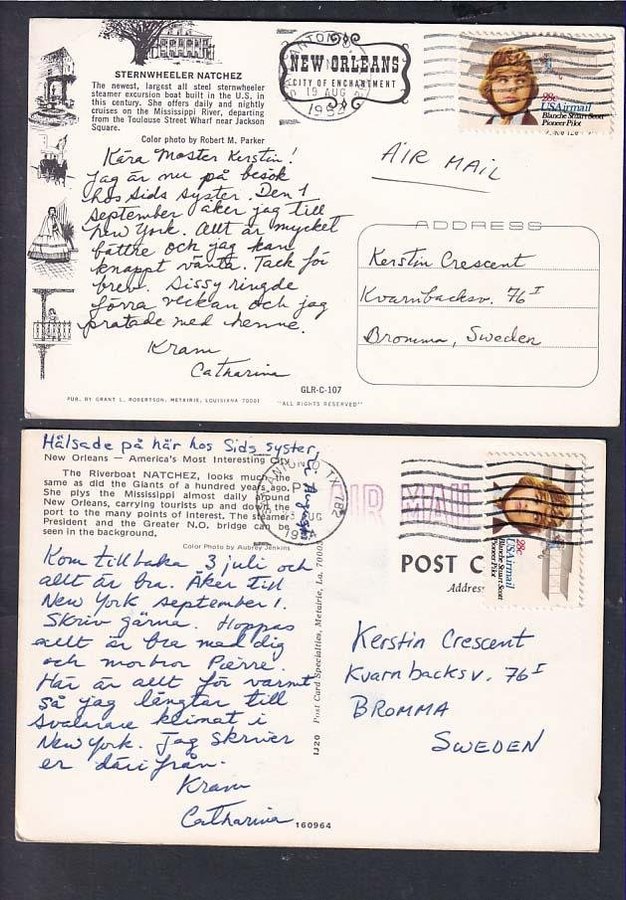 STERNWHEELER NATCHEZ
The newest, largest all steel sternwheeler
steamer excursion boat built in the U.S. in
this century. She offers daily and nightly
cruises on the Mississippi River, departing
from the Toulouse Street Wharf near Jackson
Square.
Color photo by Robert M. Parker
NEW ORLEANS
CITY OF ENCHANTMENT
19 AUG
28c
USAirmail
Blanche Stuart Scott
Pioneer Pilot
Kära Moster Kerstin!
Jag är nu på besök
hos Sids syster. Den 1
september åker jag till
New York. Allt är mycket
bättre och jag kan
knappt vänta. Tack för
brev. Sissy ringde
förra veckan och jag
pratade med henne.
Kram
Catharina
AIR MAIL
ADDRESS
Kerstin Crescent
Kvarnbacksv. 76 I
Bromma, Sweden
GLR-C-107
PUB. BY GRANT L. ROBERTSON, METAIRIE, LOUISIANA 70001
"ALL RIGHTS RESERVED"
Hälsade på här hos Sids syster,
New Orleans — America's Most Interesting City
The Riverboat NATCHEZ, looks much the
same as did the Giants of a hundred years ago.
She plys the Mississippi almost daily around
New Orleans, carrying tourists up and down the
port to the many points of interest. The steamer
President and the Greater N.O. bridge can be
seen in the background.
Color Photo by Aubrey Jenkins
SAN ANTONIO TX 782
PM
AUG
AIR MAIL
28c
USAirmail
Blanche Stuart Scott
Pioneer Pilot
Kom tillbaka 3 juli och
allt är bra. Åker till
New York september 1.
Skriv gärna. Hoppas
allt är bra med dig
och morbror Pierre.
Här är allt för varmt
så jag längtar till
svalare klimat i
New York. Jag skriver
er därifrån.
Kram
Catharina
160964
1J20 Post Card Specialties, Metairie, La. 7000
POST C
Address
Kerstin Crescent
Kvarnbacksv. 76 I
BROMMA
SWEDEN